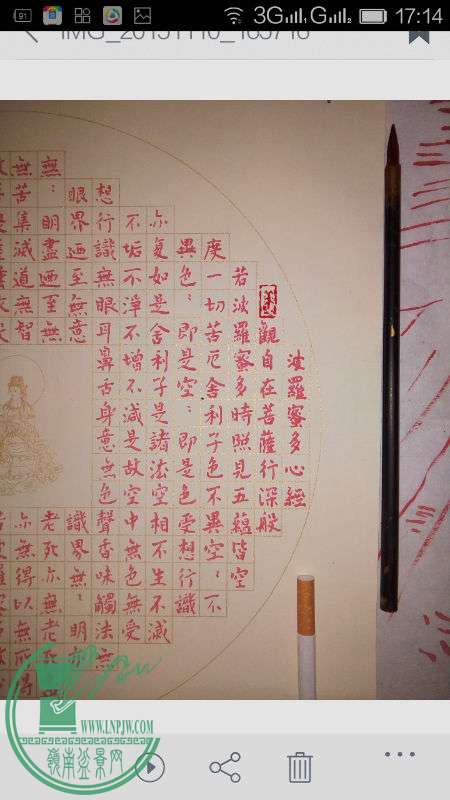 17:14
3G G
IMG_20151110_165716
波羅蜜多心經
觀自在菩薩行深般
若波羅蜜多時照見五蘊皆空
度一切苦厄舍利子色不異空：不
異色：即是空：即是色受想行識
亦復如是舍利子是諸法空相不生不滅
不垢不淨不增不減是故空中無色無受
想行識無眼耳鼻舌身意無色聲香味觸法無
眼界迺至無意
識界無：明亦
無：明盡迺至無
老死亦無老死
無苦集滅道無智
亦無得以無所得
WWW.LNPJW.COM
嶺南盆景网